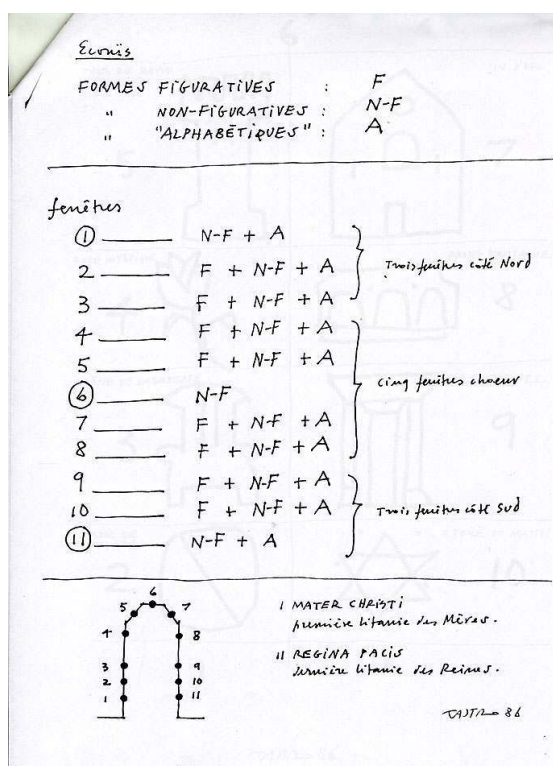 Econïs
FORMES FIGURATIVES : F
" NON-FIGURATIVES : N-F
" "ALPHABÉTIQUES" : A
fenêtres
1 N-F + A
2 F + N-F + A
3 F + N-F + A
Trois fenêtres côté Nord
4 F + N-F + A
5 F + N-F + A
6 N-F
7 F + N-F + A
8 F + N-F + A
cinq fenêtres choeur
9 F + N-F + A
10 F + N-F + A
11 N-F + A
Trois fenêtres côté Sud
6
5 7
4 8
3 9
2 10
1 11
1 MATER CHRISTI
première litanie des Mères.
11 REGINA PACIS
dernière litanie des Reines.
86